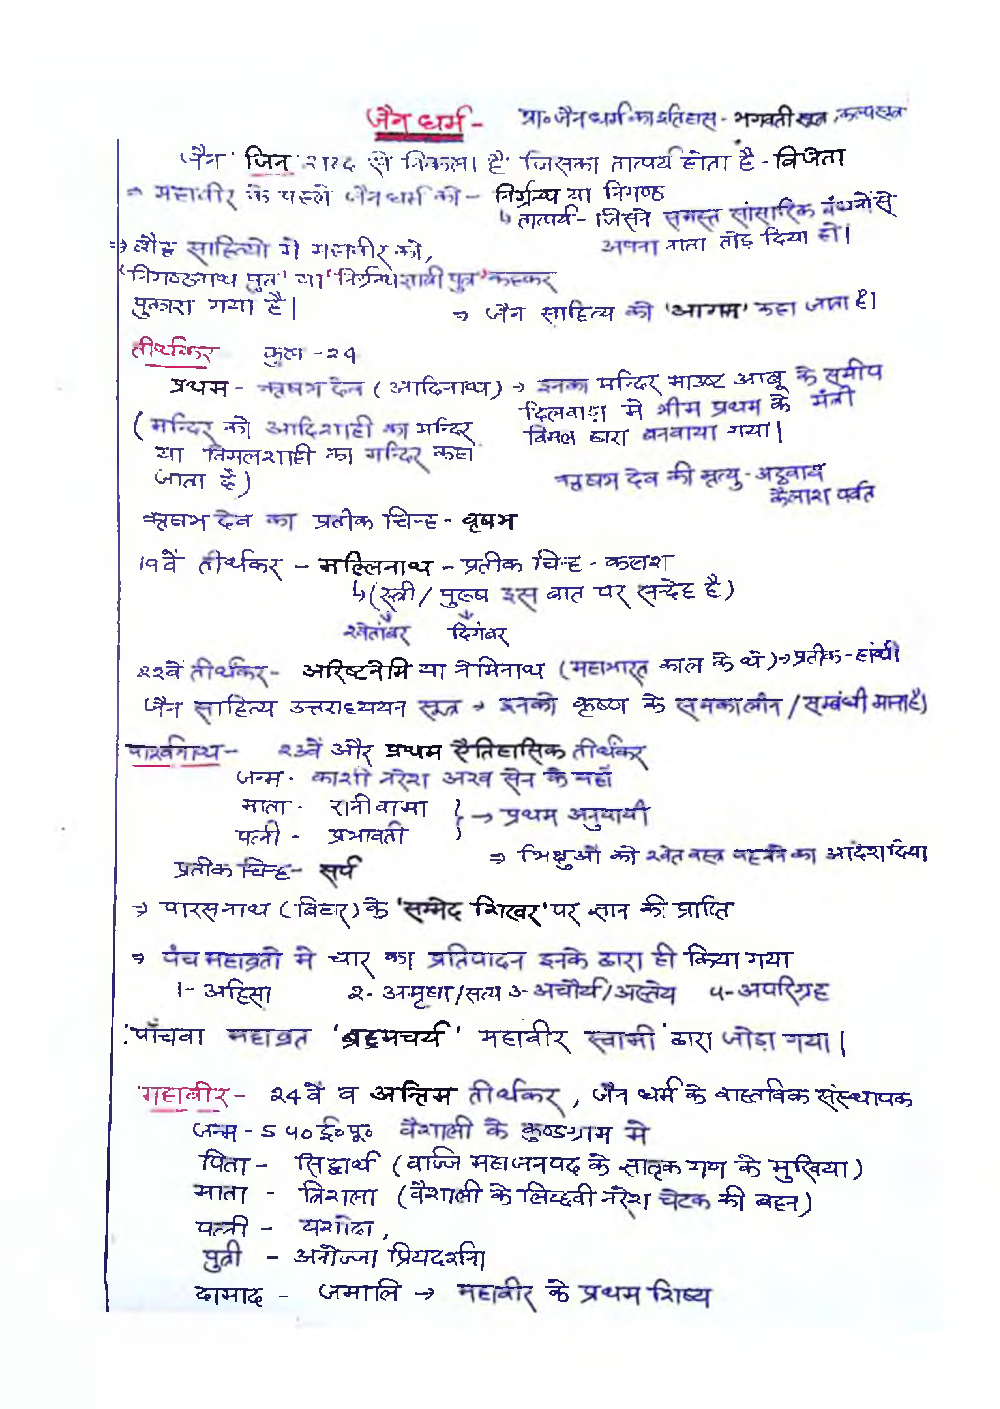 जैन धर्म - प्रा० जैन धर्म का इतिहास - भगवती सूत्र, कल्पसूत्र
जैन 'जिन' शब्द से निकला है जिसका तात्पर्य होता है - विजेता
⇒ महावीर के पहले जैन धर्म को - निर्ग्रन्थ या निगण्ठ
↳ तात्पर्य - जिसने समस्त सांसारिक बंधनों से
अपना नाता तोड़ दिया हो।
⇒ बौद्ध साहित्यो मे महावीर को,
'निगण्ठनाथ पुत्त' या 'निर्ग्रन्थ ज्ञात्री पुत्र' कहकर
पुकारा गया है।
⇒ जैन साहित्य को 'आगम' कहा जाता है।
तीर्थकर कुल - 24
प्रथम - ऋषभ देव (आदिनाथ) → इनका मन्दिर माउण्ट आबू के समीप
दिलवाड़ा मे भीम प्रथम के मंत्री
विमल द्वारा बनवाया गया।
(मन्दिर को आदिशाही का मन्दिर
या विमलशाही का मन्दिर कहा
जाता है)
ऋषभ देव की मृत्यु - अट्ठवाय
कैलाश पर्वत
ऋषभ देव का प्रतीक चिन्ह - वृषभ
19वें तीर्थकर - मल्लिनाथ - प्रतीक चिन्ह - कलश
↳ (स्त्री / पुरूष इस बात पर सन्देह है)
श्वेतांबर दिगंबर
22वें तीर्थकर - अरिष्टनेमि या नेमिनाथ (महाभारत काल के थे) → प्रतीक - हांथी
जैन साहित्य उत्तराध्ययन सूत्र → इनको कृष्ण के समकालीन / सम्बंधी माना है)
पार्श्वनाथ - 23वें और प्रथम ऐतिहासिक तीर्थकर
जन्म - काशी नरेश अश्व सेन के यहाँ
माता - रानी वामा } → प्रथम अनुयायी
पत्नी - प्रभावती
⇒ भिक्षुओ को श्वेत वस्त्र पहनने का आदेश दिया
प्रतीक चिन्ह - सर्प
⇒ पारसनाथ (बिहार) के 'सम्मेद शिखर' पर ज्ञान की प्राप्ति
⇒ पंच महाव्रतो मे चार का प्रतिपादन इनके द्वारा ही किया गया
1- अहिंसा 2- अमृषा/सत्य 3- अचौर्य/अस्तेय 4- अपरिग्रह
पाँचवा महाव्रत 'ब्रह्मचर्य' महावीर स्वामी द्वारा जोड़ा गया।
महावीर - 24वें व अन्तिम तीर्थकर, जैन धर्म के वास्तविक संस्थापक
जन्म - 540 ई० पू० वैशाली के कुण्डग्राम मे
पिता - सिद्वार्थ (वाज्जि महाजनपद के ज्ञातृक गण के मुखिया)
माता - त्रिशला (वैशाली के लिच्छवी नरेश चेटक की बहन)
पत्नी - यशोदा,
पुत्री - अनोज्जा प्रियदर्शना
दामाद - जमालि → महावीर के प्रथम शिष्य